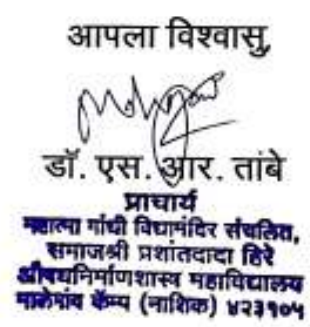 आपला विश्वासु,
डॉ. एस. आर. तांबे
प्राचार्य
महात्मा गांधी विद्यामंदिर संचलित,
समाजश्री प्रशांतदादा हिरे
औषधनिर्माणशास्त्र महाविद्यालय
मालेगांव कॅम्प (नाशिक) ४२३१०५